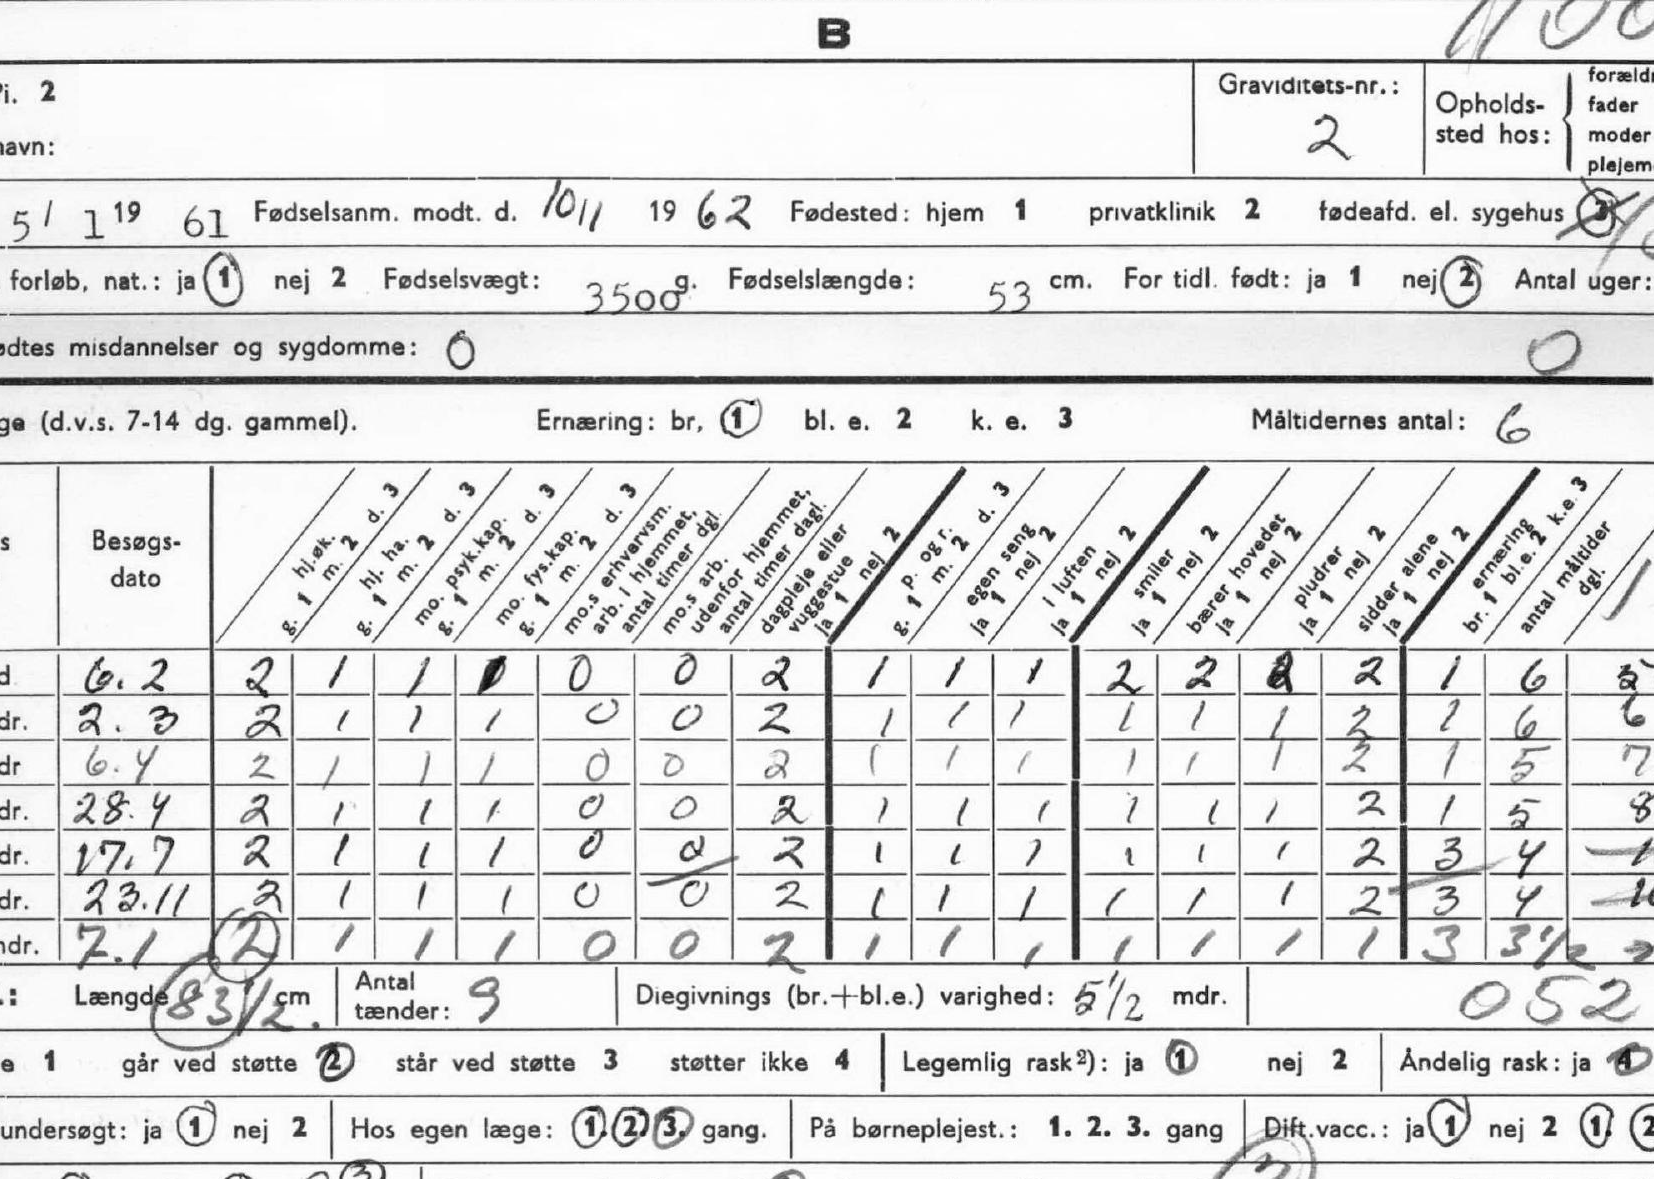 B
i. 2
Graviditets-nr.: 2
Opholdssted hos:
fader
moder
navn:
5/ 1 19 61 Fødselsanm. modt. d. 10/11 19 62 Fødested: hjem 1 privatklinik 2 fødeafd. el. sygehus 3
forløb, nat.: ja 1 nej 2 Fødselsvægt: 3500 g. Fødselslængde: 53 cm. For tidl. født: ja 1 nej 2 Antal uger:
misdannelser og sygdomme: 0 0
(d.v.s. 7-14 dg. gammel). Ernæring: br, 1 bl. e. 2 k. e. 3 Måltidernes antal: 6
Besøgs-dato
hj.øk. g. 1 m. 2 d. 3
hj. ha. g. 1 m. 2 d. 3
mo. psyk.kap. g. 1 m. 2 d. 3
mo. fys.kap. g. 1 m. 2 d. 3
mo.s erhvervsm. arb. i hjemmet, antal timer dgl.
mo.s arb. udenfor hjemmet, antal timer dagl.
dagpleje eller vuggestue ja 1 nej 2
p. og r. g. 1 m. 2 d. 3
egen seng ja 1 nej 2
i luften ja 1 nej 2
smiler ja 1 nej 2
bærer hovedet ja 1 nej 2
pludrer ja 1 nej 2
sidder alene ja 1 nej 2
ernæring br. 1 bl.e. 2 k.e. 3
antal måltider dgl.
6.2 2 1 1 1 0 0 2 1 1 1 2 2 2 2 1 6 5
dr. 2.3 2 1 1 1 0 0 2 1 1 1 1 1 1 2 1 6 6
dr 6.4 2 1 1 1 0 0 2 1 1 1 1 1 1 2 1 5 7
dr. 28.4 2 1 1 1 0 0 2 1 1 1 1 1 1 2 1 5 8
dr. 17.7 2 1 1 1 0 0 2 1 1 1 1 1 1 2 3 4
dr. 23.11 2 1 1 1 0 0 2 1 1 1 1 1 1 2 3 4
dr. 7.1 2 1 1 1 0 0 2 1 1 1 1 1 1 1 3 3 1/2
Længde 83 1/2 cm. Antal tænder: 9 Diegivnings (br.+bl.e.) varighed: 5 1/2 mdr. 052
e 1 går ved støtte 2 står ved støtte 3 støtter ikke 4 Legemlig rask²): ja 1 nej 2 Åndelig rask: ja
undersøgt: ja 1 nej 2 Hos egen læge: 1. 2. 3. gang. På børneplejest.: 1. 2. 3. gang Dift.vacc.: ja 1 nej 2 1. 2